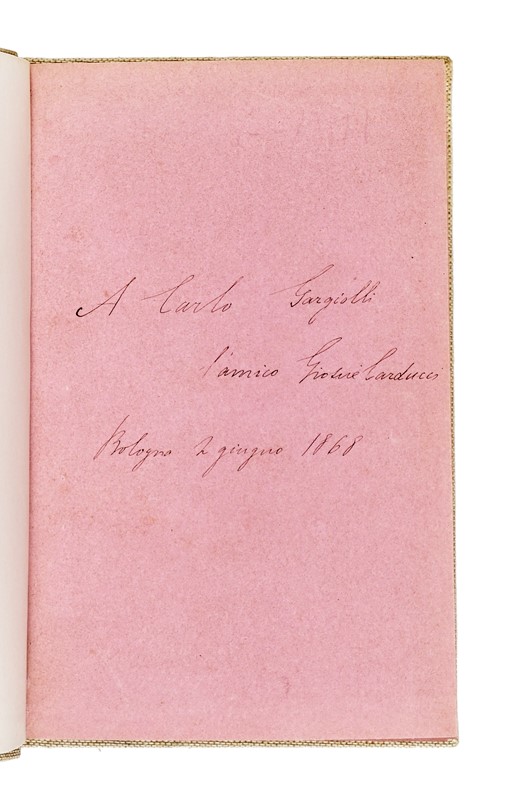 A Carlo Gargiolli
l'amico Giosuè Carducci
Bologna 2 giugno 1868